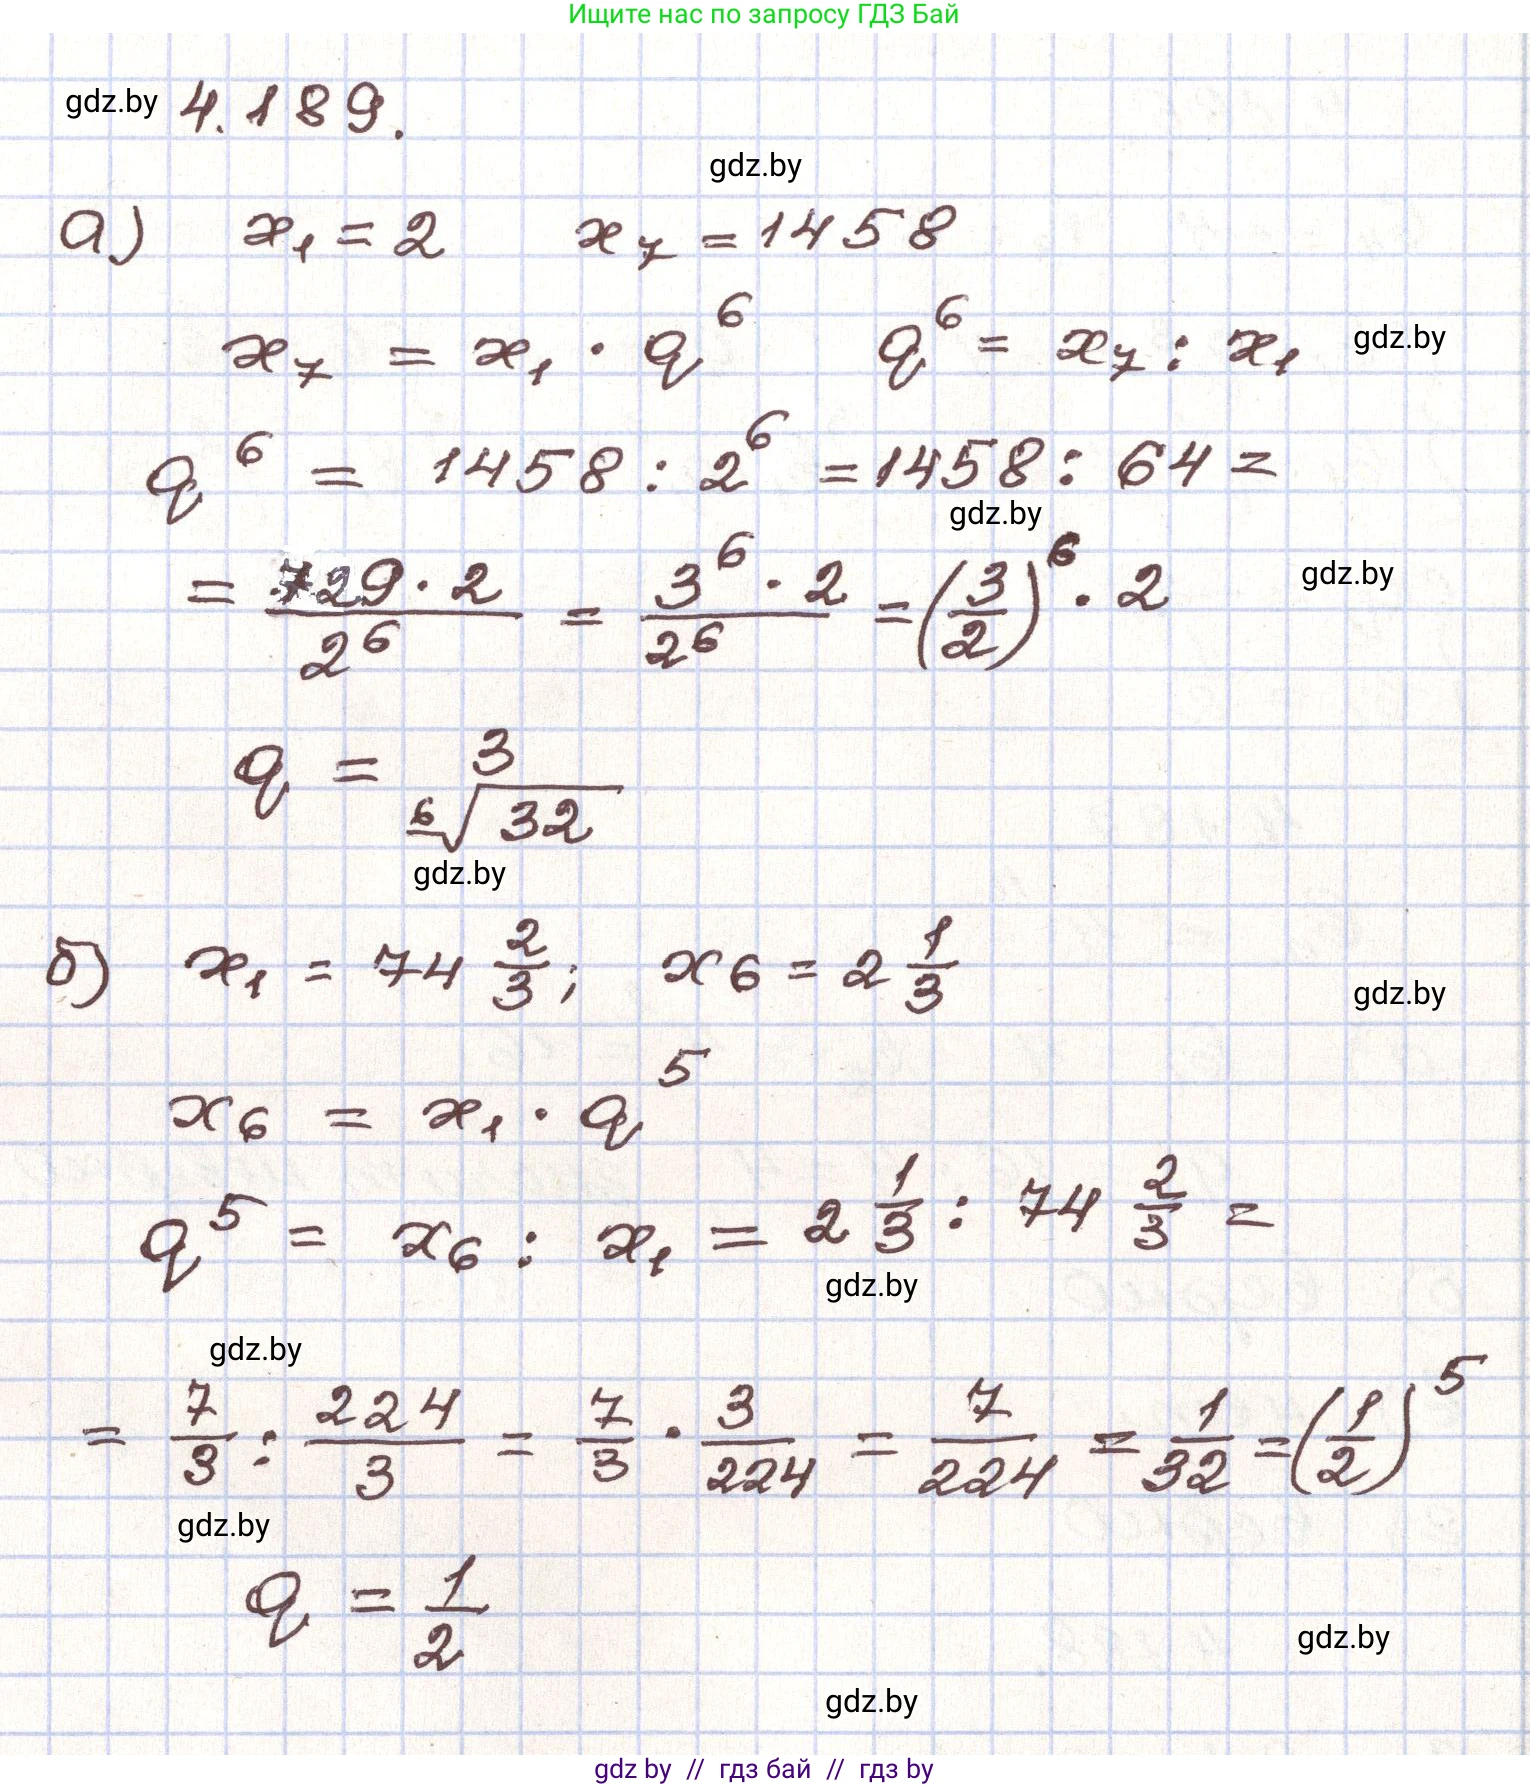 Ищите нас по запросу ГДЗ Бай
gdz.by 4.189.
gdz.by
а) x₁ = 2 x₇ = 1458
x₇ = x₁ · q⁶ q⁶ = x₇ : x₁ gdz.by
q⁶ = 1458 : 2⁶ = 1458 : 64 =
gdz.by
= 729·2/2⁶ = 3⁶·2/2⁶ = (3/2)⁶ · 2 gdz.by
q = 3/⁶√32
gdz.by
б) x₁ = 74 2/3; x₆ = 2 1/3
gdz.by
x₆ = x₁ · q⁵
q⁵ = x₆ : x₁ = 2 1/3 : 74 2/3 =
gdz.by
gdz.by
= 7/3 : 224/3 = 7/3 · 3/224 = 7/224 = 1/32 = (1/2)⁵
gdz.by
q = 1/2
gdz.by
gdz.by
gdz by // гдз бай // гдз by